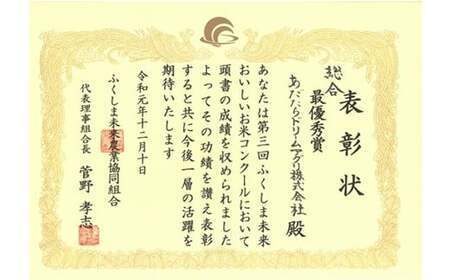 表彰状
総合
最優秀賞
あだたらドリームアグリ株式会社 殿
あなたは第三回ふくしま未来
おいしいお米コンクールにおいて
頭書の成績を収められました
よってその功績を讃え表彰
すると共に今後一層の活躍を
期待いたします
令和元年十二月十日
ふくしま未来農業協同組合
代表理事組合長 菅野孝志